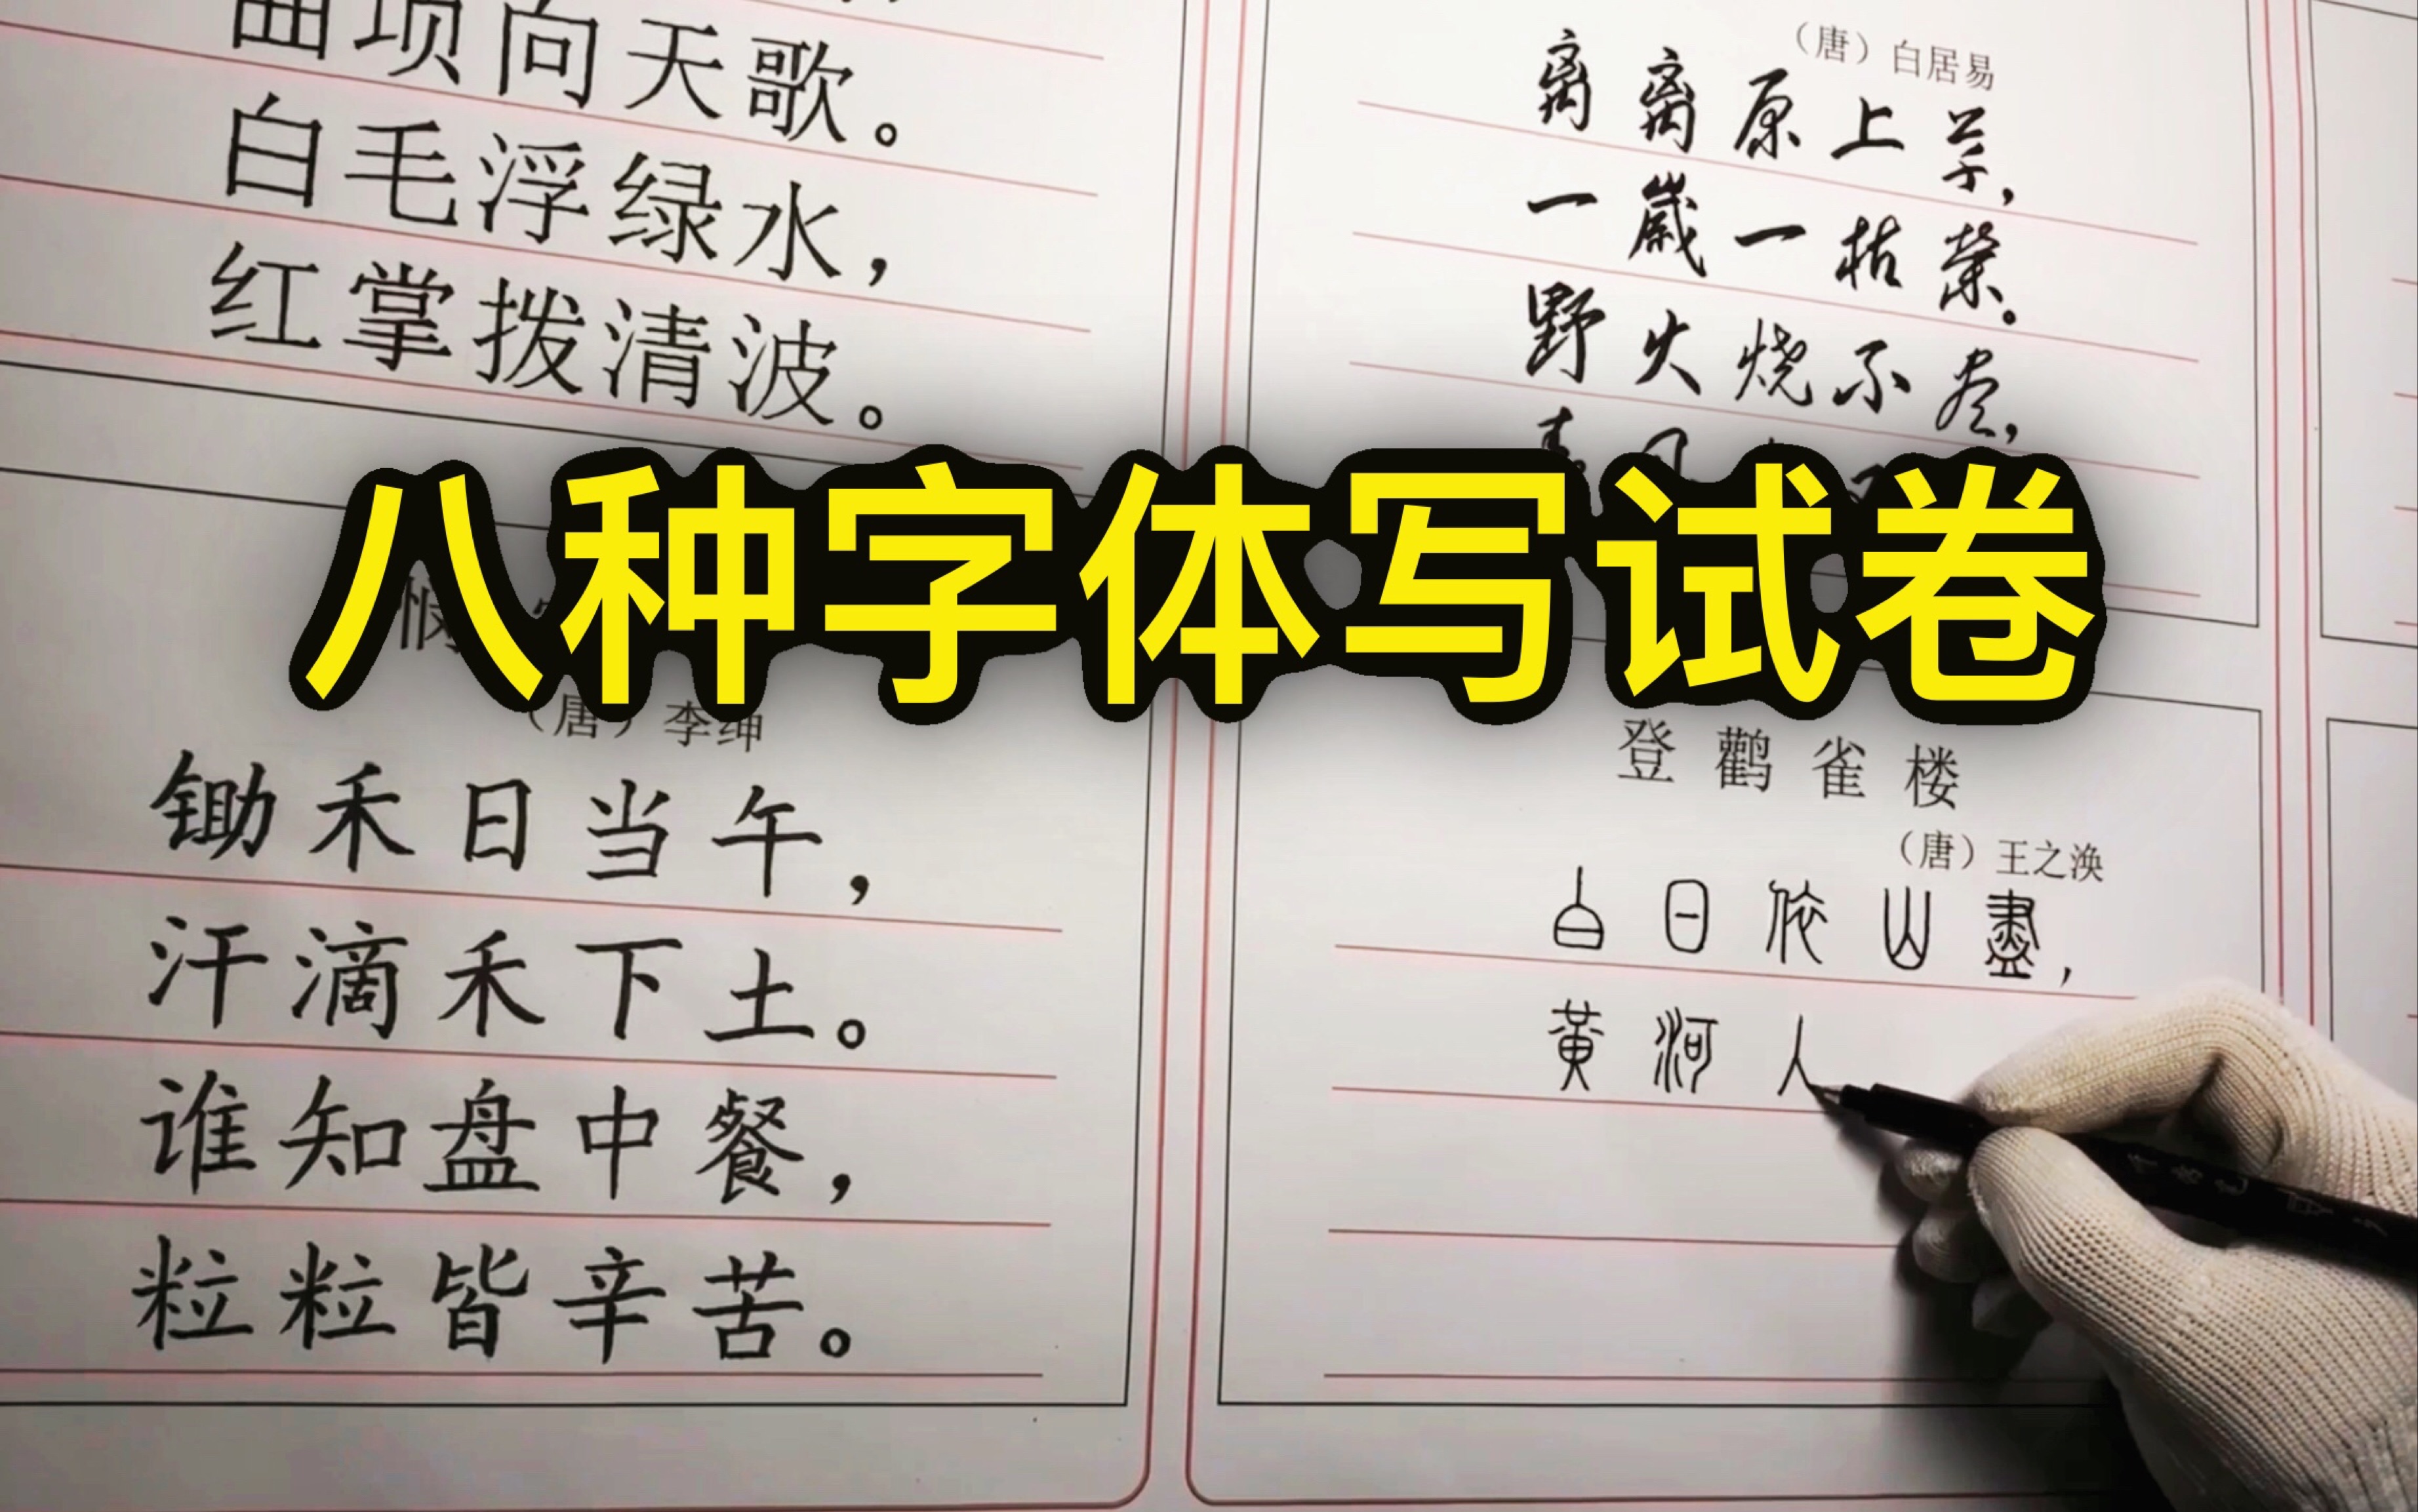 曲项向天歌。
白毛浮绿水，
红掌拨清波。
（唐）白居易
离离原上草，
一歲一枯榮。
野火烧不尽，
八种字体写试卷
悯
（唐）李绅
锄禾日当午，
汗滴禾下土。
谁知盘中餐，
粒粒皆辛苦。
登鹳雀楼
（唐）王之涣
白日依山盡，
黃河人